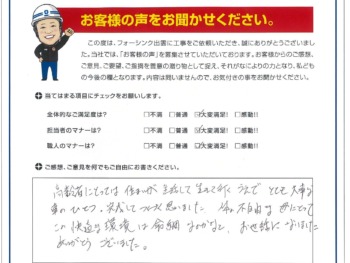 お客様の声をお聞かせください。
この度は、フォーシンク出雲に工事をご依頼いただき、誠にありがとうございました。
当社では、「お客様の声」を募集させていただいております。お客様からのご感想、
ご意見、ご要望、ご指摘を善意の贈り物として捉え、それがなにによりの力となり、私ども
の今後の糧となります。内容は問いませんので、お気付きの事をお聞かせください。
当てはまる項目にチェックをお願いします。
全体的なご満足度は? □不満 □普通 ☑大変満足!! □感動!!
担当者のマナーは? □不満 □普通 ☑大変満足!! □感動!!
職人のマナーは? □不満 □普通 ☑大変満足!! □感動!!
ご感想、ご意見を何でもご自由にお書きください。
高齢者にとっては 住まいが 生きて行く 上で とても 大事な
事の ひとつ 思いました 不自由な 私にとって
この 快適な 環境 は 命綱 お世話になりました
ありがとう ございました。